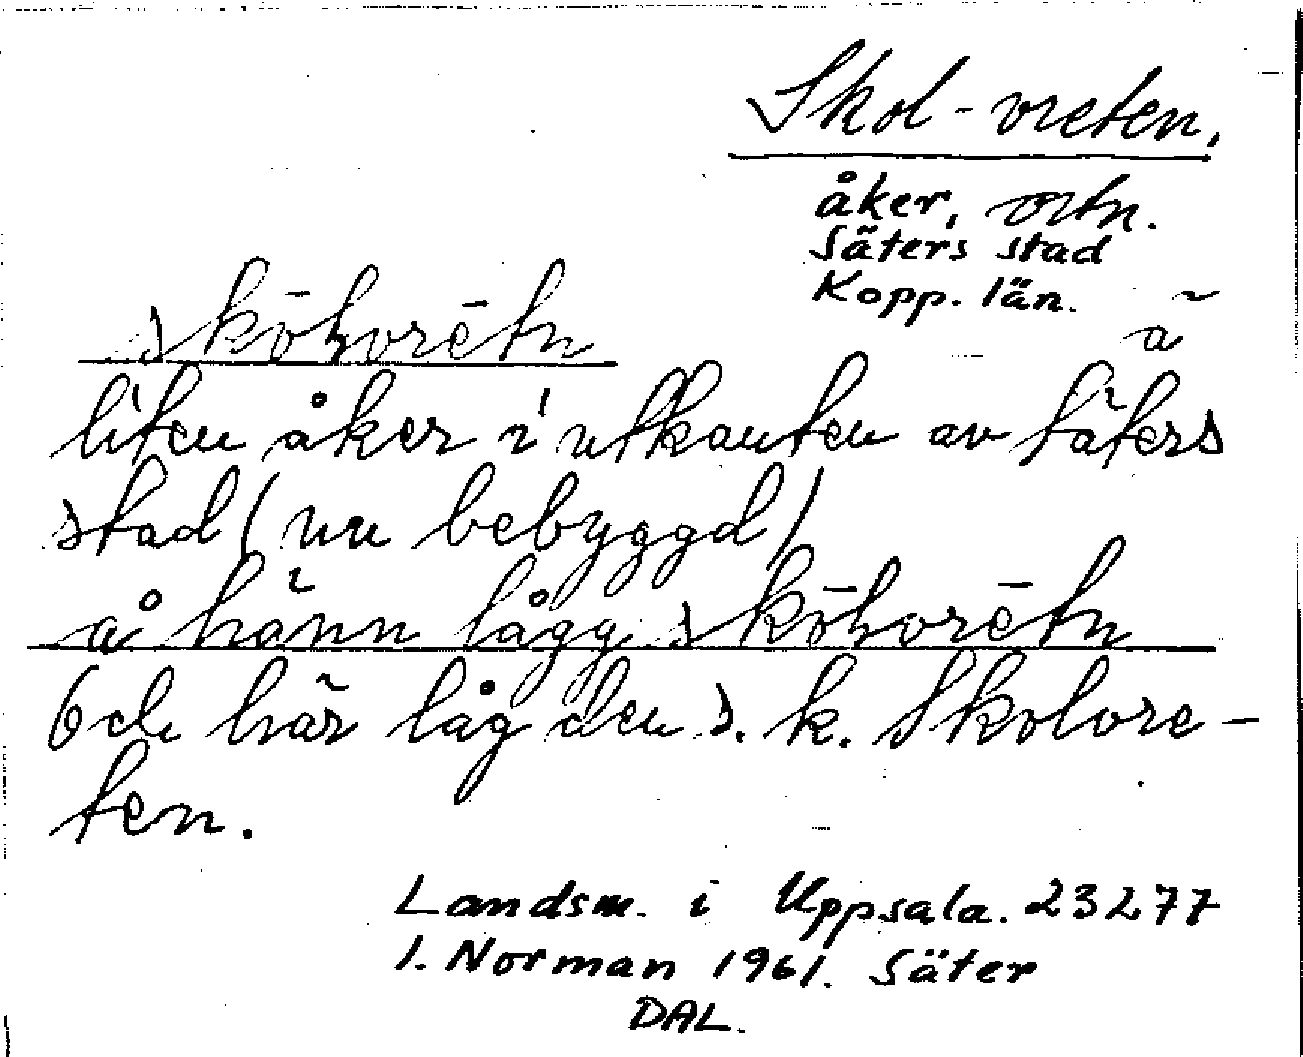 Skol-vreten,
åker, ortn.
Säters stad
Kopp. län.
skōłvrētn
ä
liten åker i utkanten av Säters
stad (nu bebyggd)
å hänn lågg skōłvrētn
Och här låg den s. k. Skolvre-
ten.
Landsm. i Uppsala. 23277
I. Norman 1961. Säter
DAL.